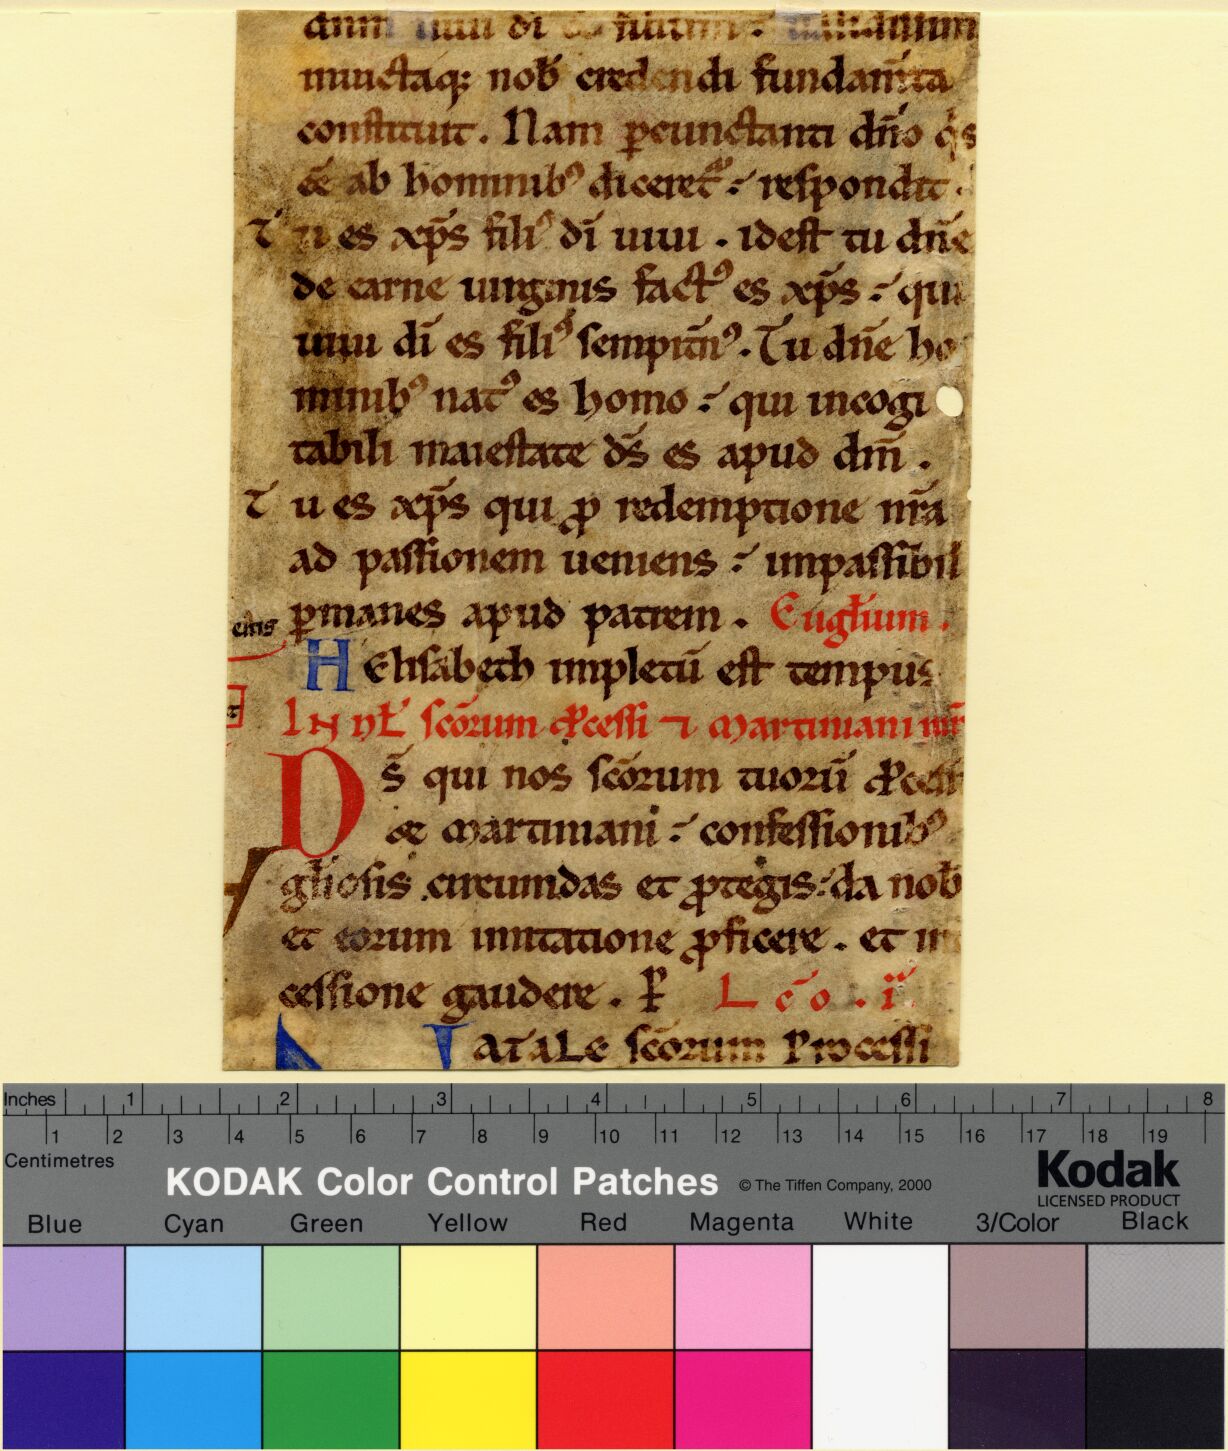 uiui di
inuictaq; nob̄ credendi fundam̄ta
constituit. Nam ꝑcunctanti dn̄o q̇s
ee ab hominibꝰ diceret᷑ : respondit.
Tu es xp̄s filiꝰ dī uiui . idest tu dn̄e
de carne uirginis factꝰ es xp̄s : qui
uiui dī es filiꝰ sempit̄nꝰ. Tu dn̄e ho
minibꝰ natꝰ es homo : qui incogi
tabili maiestate ds̄ es apud dm̄ .
Tu es xp̄s qui ꝓ redemptione nr̄a
ad passionem ueniens : impassibil
ꝑmanes apud patrem . Eugl̄ium .
H Elisabeth impletū est tempus
IN nt̄ scōrum ꝓcessi ⁊ martiniani mr̄
Ds̄ qui nos scōrum tuorū ꝓcessi
et martiniani : confessionibꝰ
gl̄iosis circumdas et ꝓtegis : da nob̄
et eorum imitatione ꝓficere . et int
cessione gaudere . Ꝑ Lc̄o . i
NATALE scōrum Processi
Inches 1 2 3 4 5 6 7 8
1 2 3 4 5 6 7 8 9 10 11 12 13 14 15 16 17 18 19
Centimetres
KODAK Color Control Patches © The Tiffen Company, 2000 Kodak
LICENSED PRODUCT
Blue Cyan Green Yellow Red Magenta White 3/Color Black